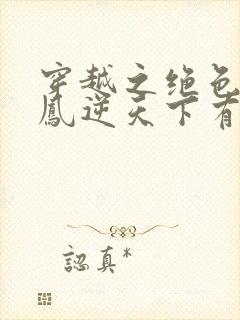 穿越之绝色
鳳逆天下有
認真*